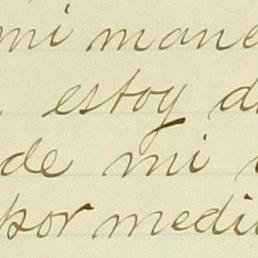 mi mane
estoy d
de mi
por medi